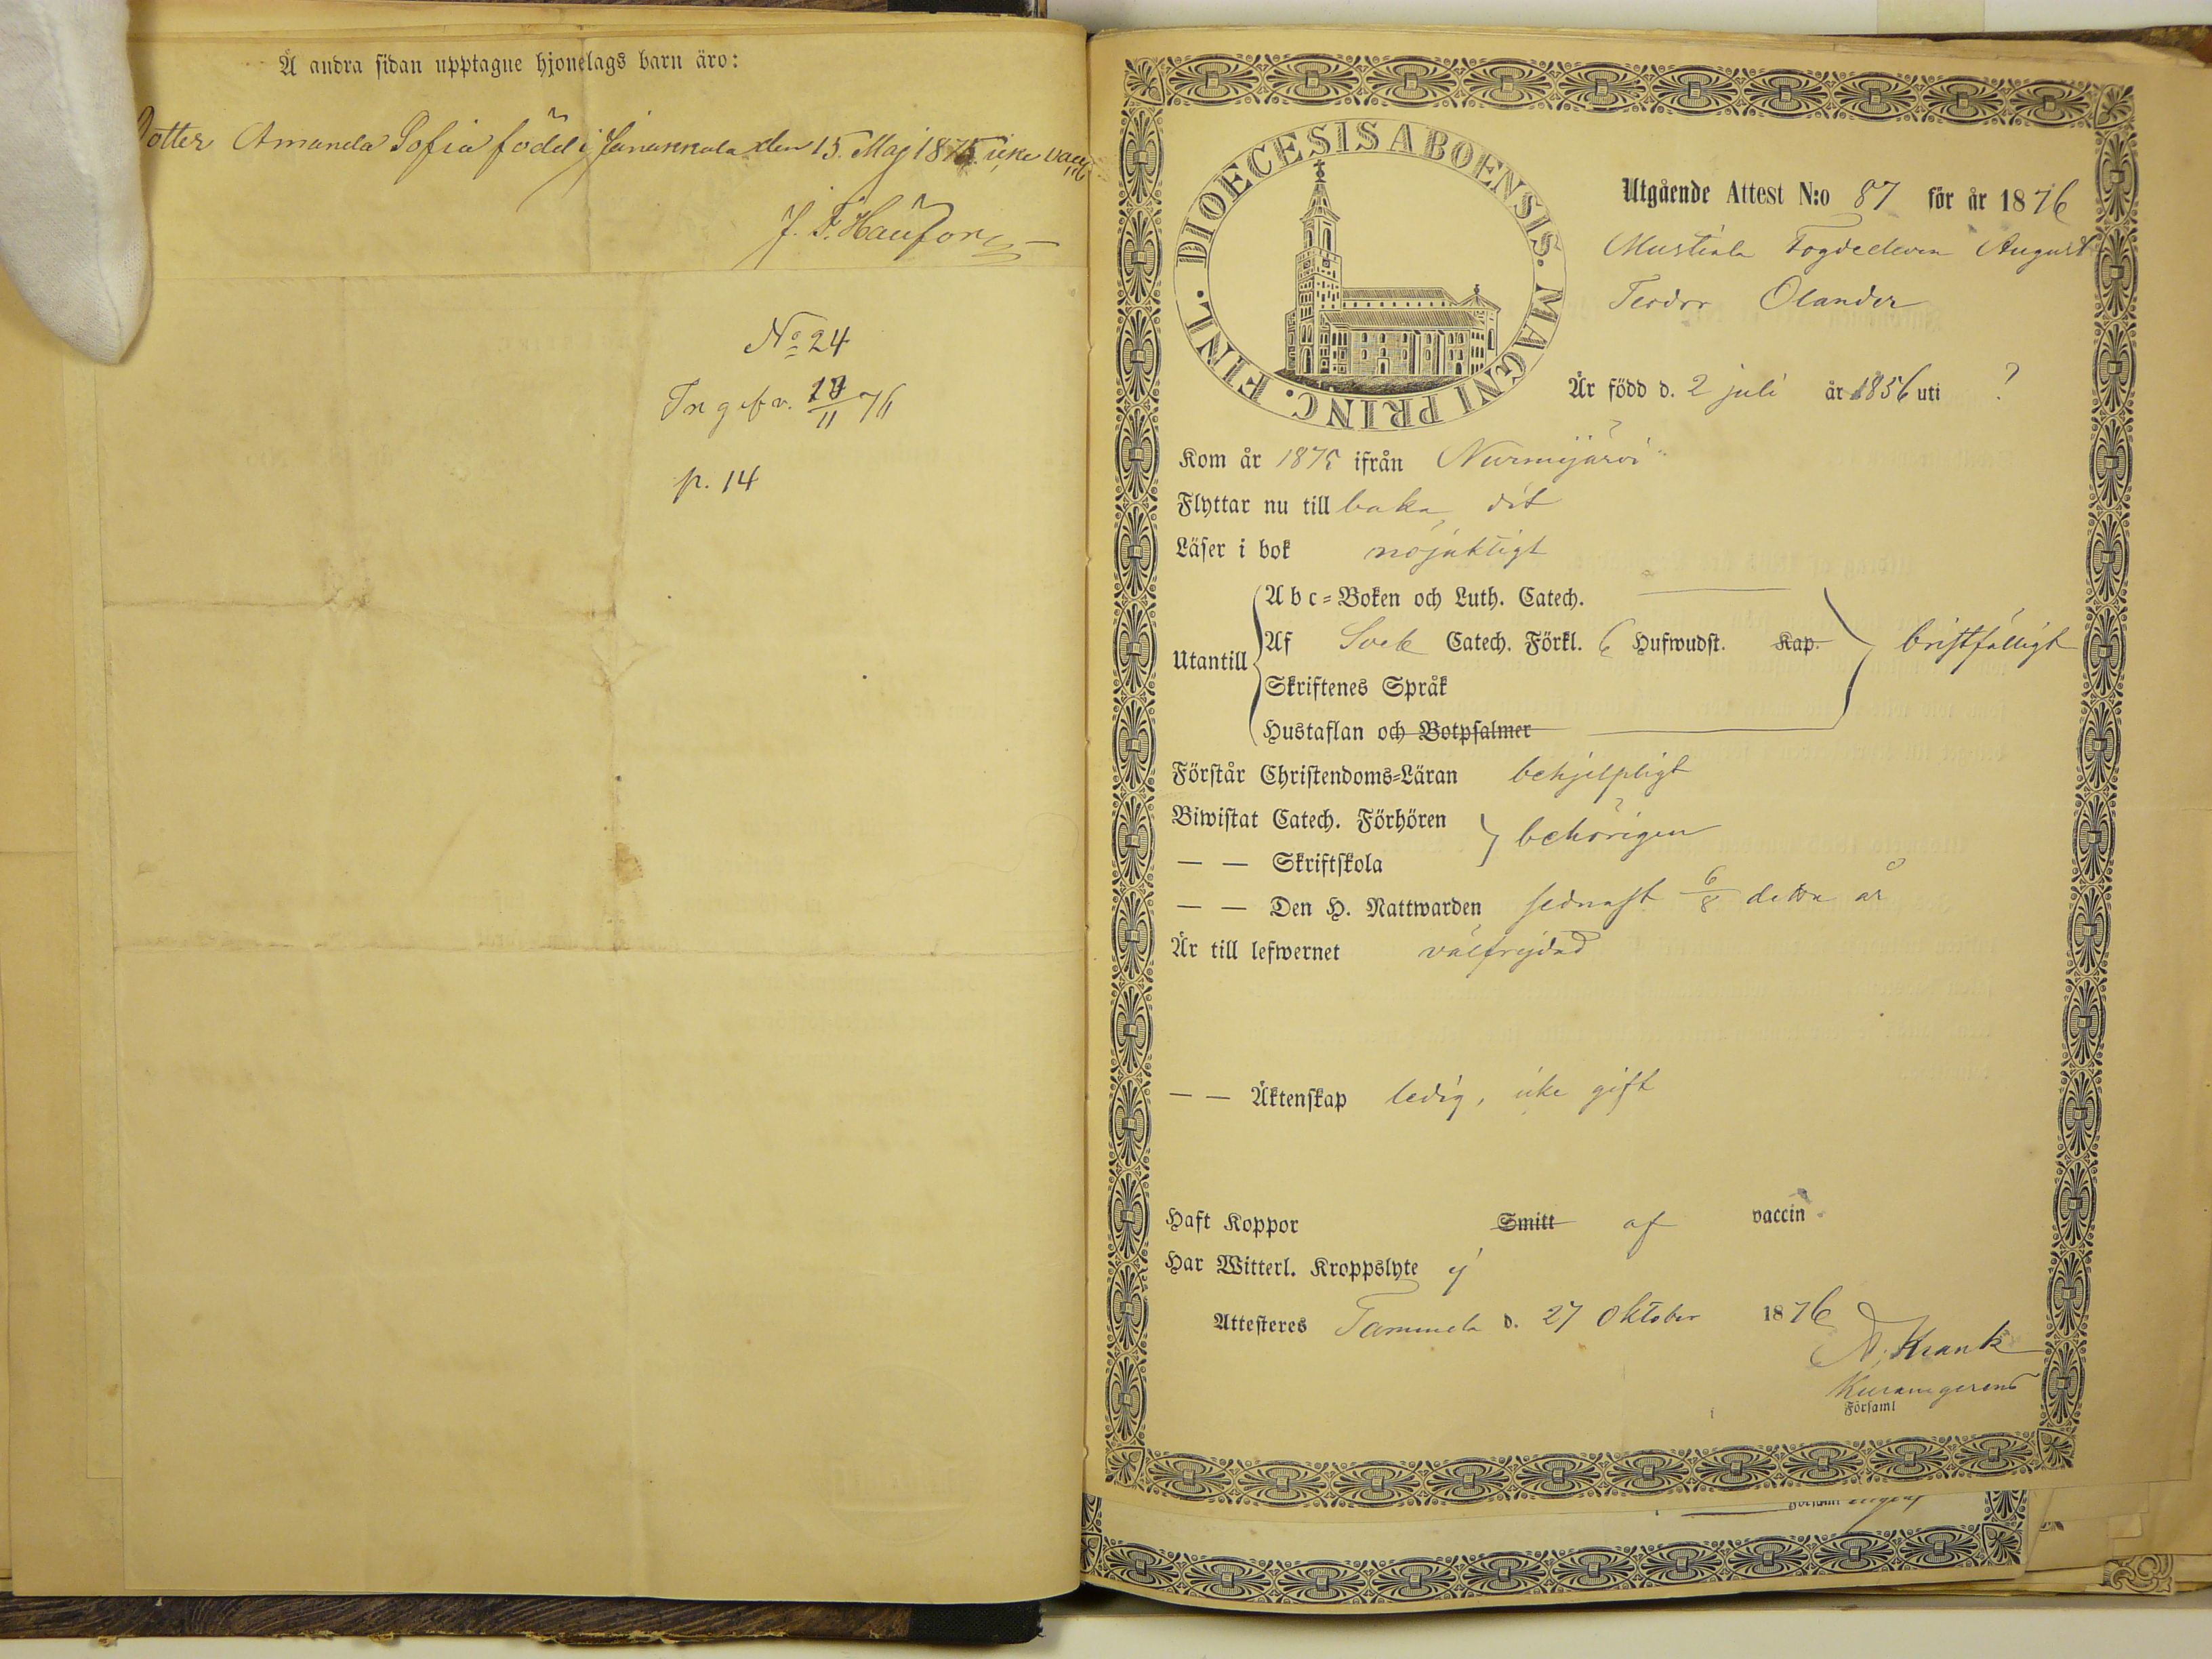 Å andra sidan upptagne hjonelags barn äro:
Dotter Amanda Sofia född i Janakkala den 15. Maj 1875 icke vacc
No 24
Ingifv. 18/11 76
p. 14
DIOECESIS ABOENSIS. MAGNI PRINC. FINL.
Utgående Attest N:o 87 för år 1876
Mustiala Fogdeeleven August
Teodor Olander
Är född d. 2 juli år 1856 uti ?
Kom år 1875 ifrån Nurmijärvi
Flyttar nu till baka dit
Läser i bok nöjaktigt
Utantill
Abc=Boken och Luth. Catech.
Af Sveb Catech. Förkl. 6 Hufwudst. Kap. bristfälligt
Skriftenes Språk
Hustaflan och Botpsalmer
Förstår Christendoms=Läran behjelpligt
Biwistat Catech. Förhören
— — Skriftskola behörigen
— — Den H. Nattwarden sednast 6/8 detta år
Är till lefwernet välfrejdad
— — Äktenskap ledig, icke gift
Haft Koppor Smitt af vaccin
Har Witterl. Kroppslyte ej
Attesteres Tammela d. 27 Oktober 1876
Krank
Kuramgerens
Församl
Församl